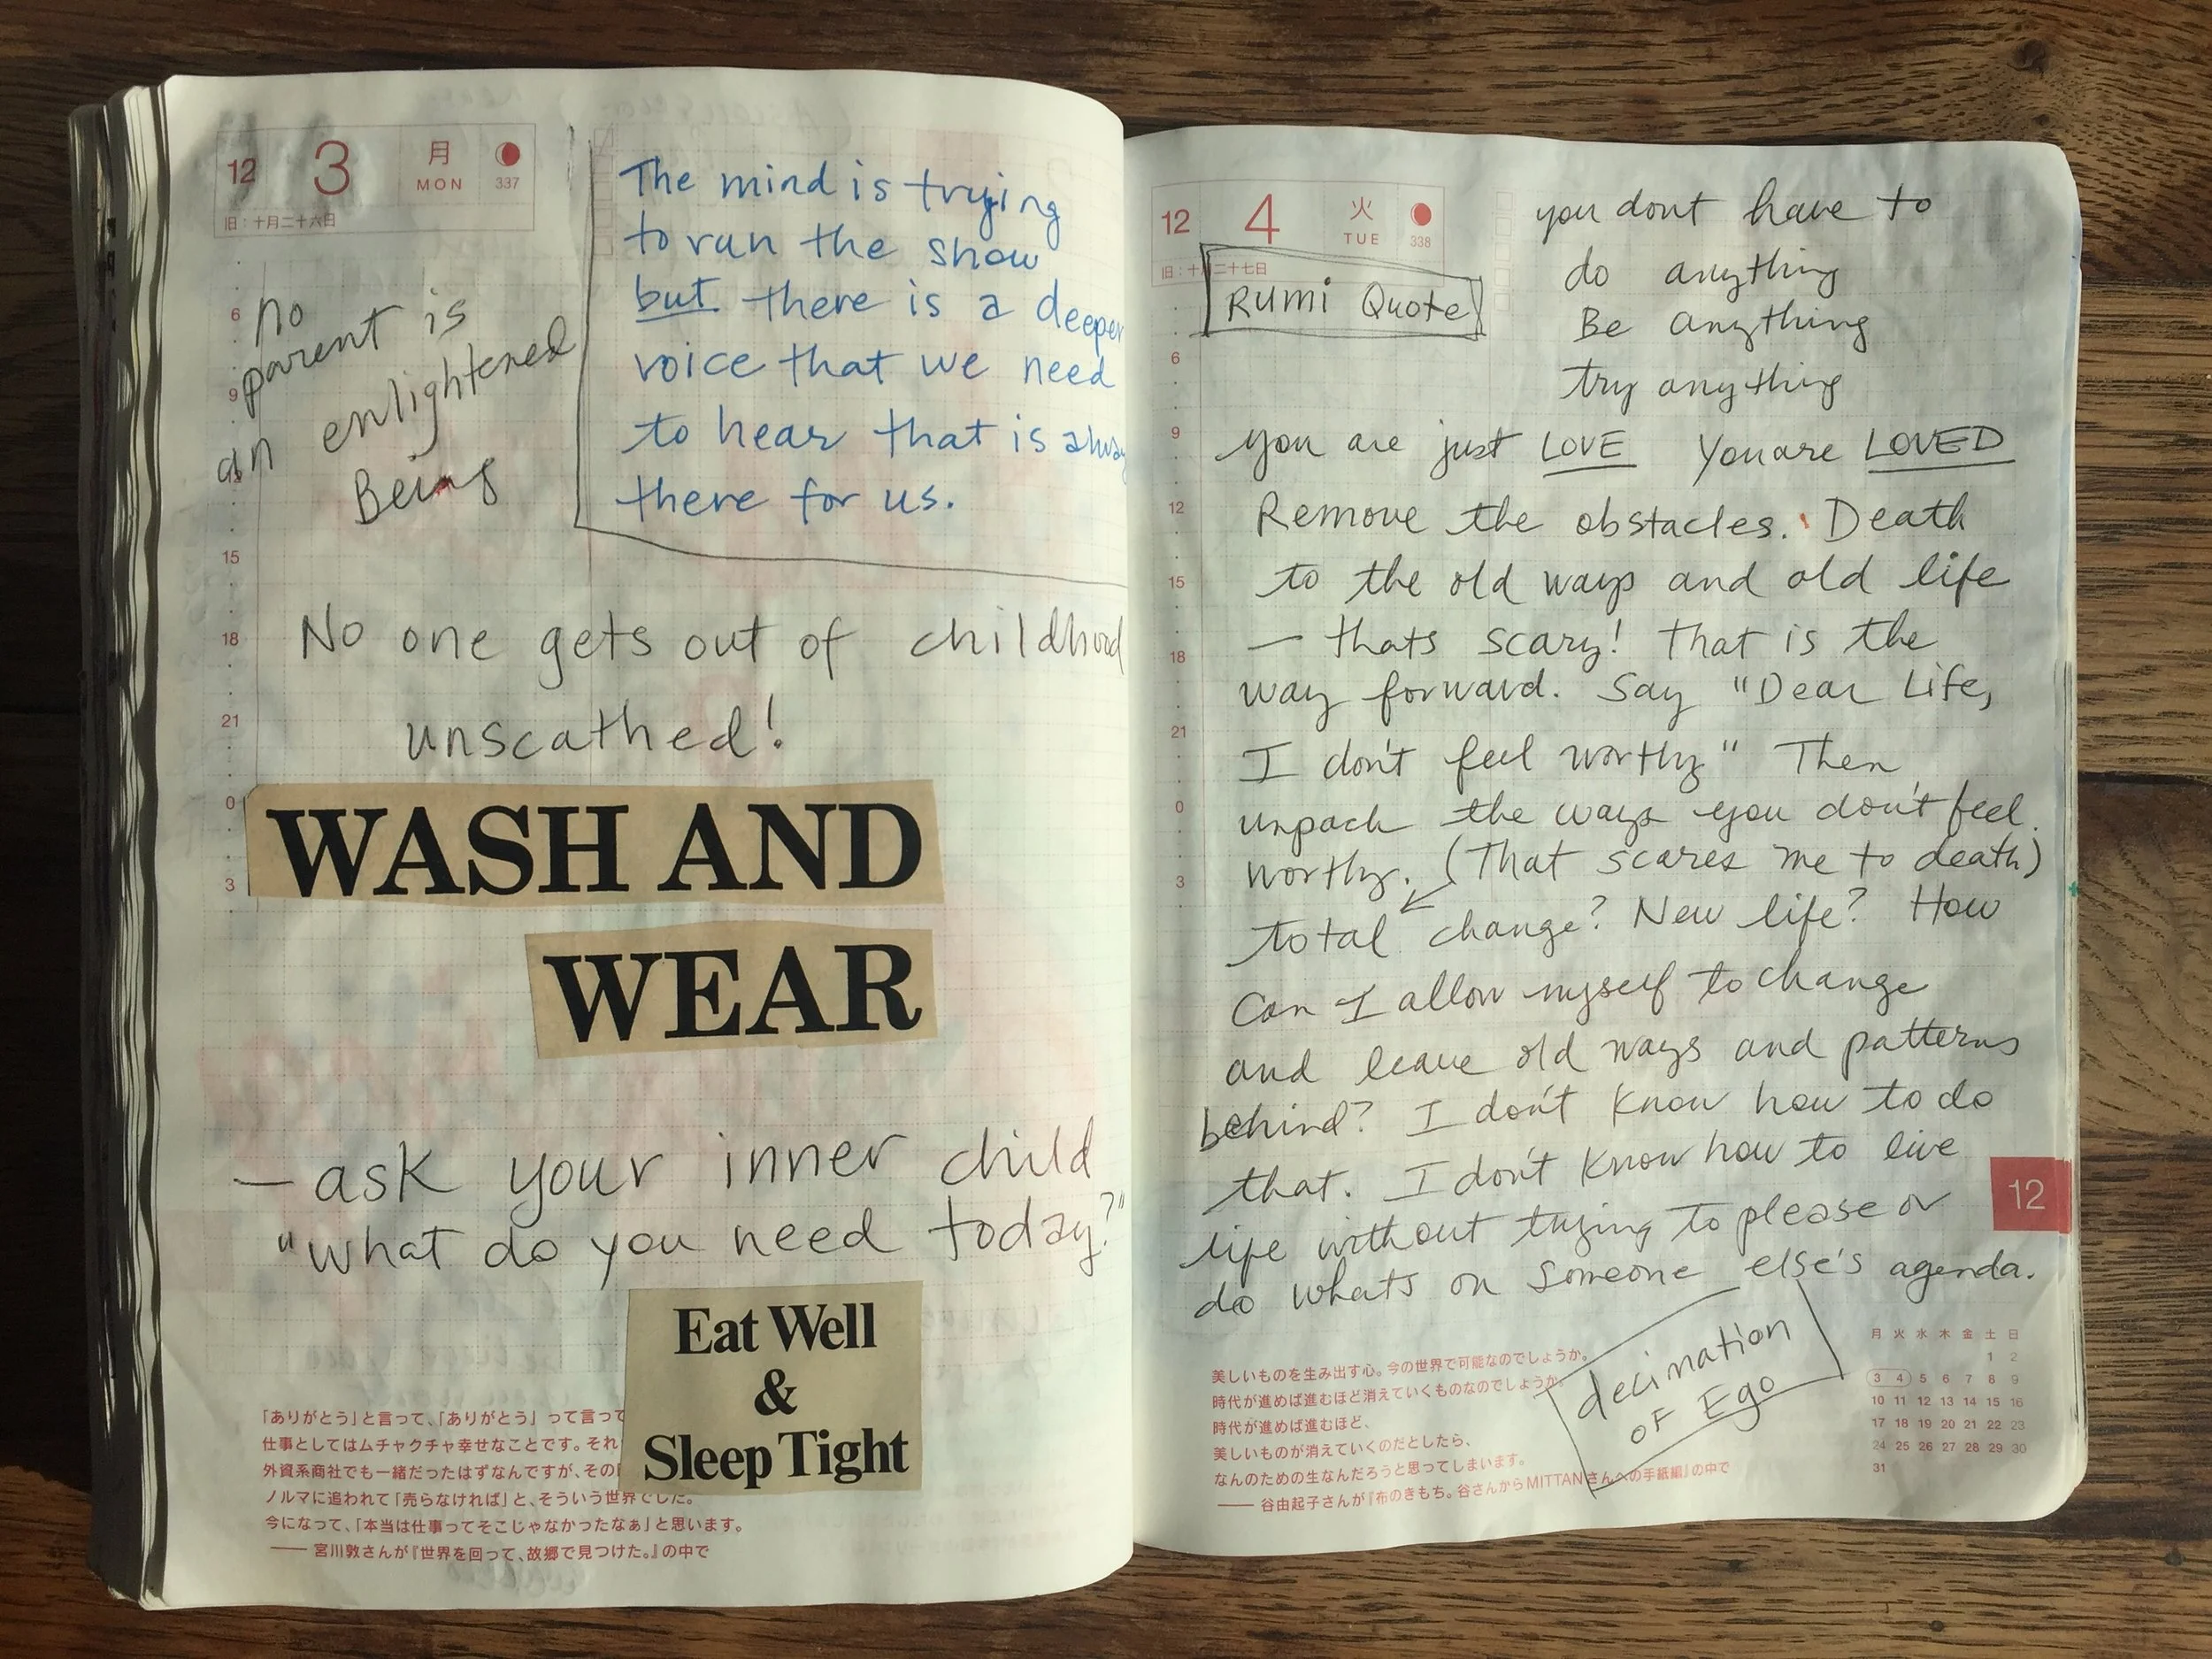 12 3 月 MON 337
旧：十月二十六日
6
9
12
15
18
21
0
3
no
parent is
an enlightened
Being
The mind is trying
to run the show
but there is a deeper
voice that we need
to hear that is alway
there for us.
No one gets out of childhood
unscathed!
WASH AND
WEAR
– ask your inner child
"what do you need today?"
Eat Well
&
Sleep Tight
「ありがとう」と言って、「ありがとう」って言って
仕事としてはムチャクチャ幸せなことです。それ
外資系商社でも一緒だったはずなんですが、その
ノルマに追われて「売らなければ」と、そういう世界でした。
今になって、「本当は仕事ってそこじゃなかったなぁ」と思います。
—— 宮川敦さんが『世界を回って、故郷で見つけた。』の中で
12 4 火 TUE 338
旧：十月二十七日
6
9
12
15
18
21
0
3
Rumi Quote
you dont have to
do anything
Be anything
try anything
you are just LOVE You are LOVED
Remove the obstacles. Death
to the old ways and old life
— thats scary! That is the
way forward. Say "Dear Life,
I don't feel worthy" Then
unpack the ways you don't feel
worthy. (That scares me to death)
total change? New life? How
Can I allow myself to change
and leave old ways and patterns
behind? I don't know how to do
that. I don't know how to live
life without trying to please or
do whats on someone else's agenda.
decimation
of Ego
美しいものを生み出す心。今の世界で可能なのでしょうか。
時代が進めば進むほど消えていくものなのでしょうか。
時代が進めば進むほど、
美しいものが消えていくのだとしたら、
なんのための生なんだろうと思ってしまいます。
—— 谷由起子さんが『布のきもち。谷さんからMITTANさんへの手紙編』の中で
12
月 火 水 木 金 土 日
1 2
3 4 5 6 7 8 9
10 11 12 13 14 15 16
17 18 19 20 21 22 23
24 25 26 27 28 29 30
31